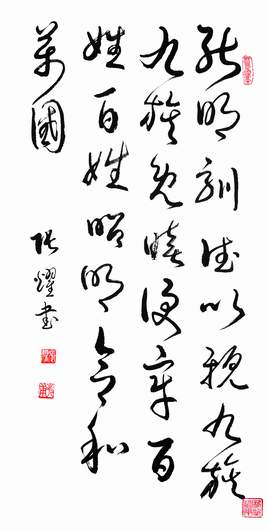 能明訓德以親九族
九族既睦便章百
姓百姓昭明合和
萬國
張燿書